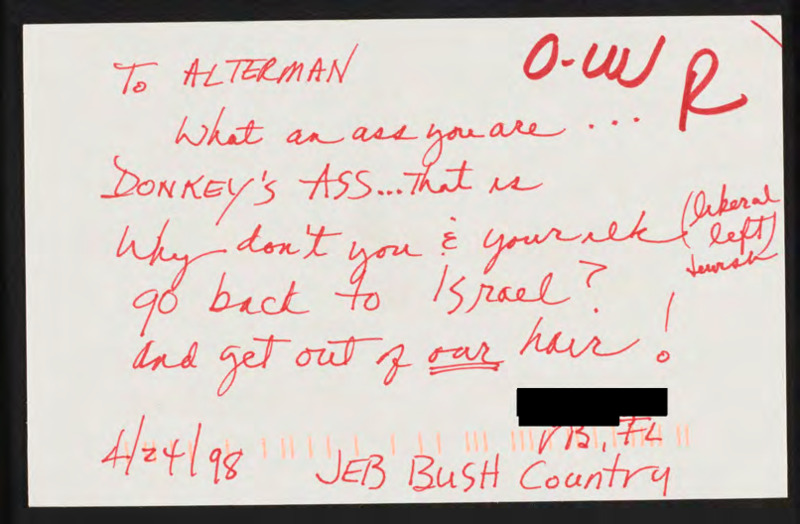 To ALTERMAN
O-W R
What an ass you are ...
DONKEY'S ASS...That is
Why don't you & your ilk (liberal
left)
Jewish
go back to Israel?
and get out of our hair!
VB, FL
4/24/98 JEB BUSH Country